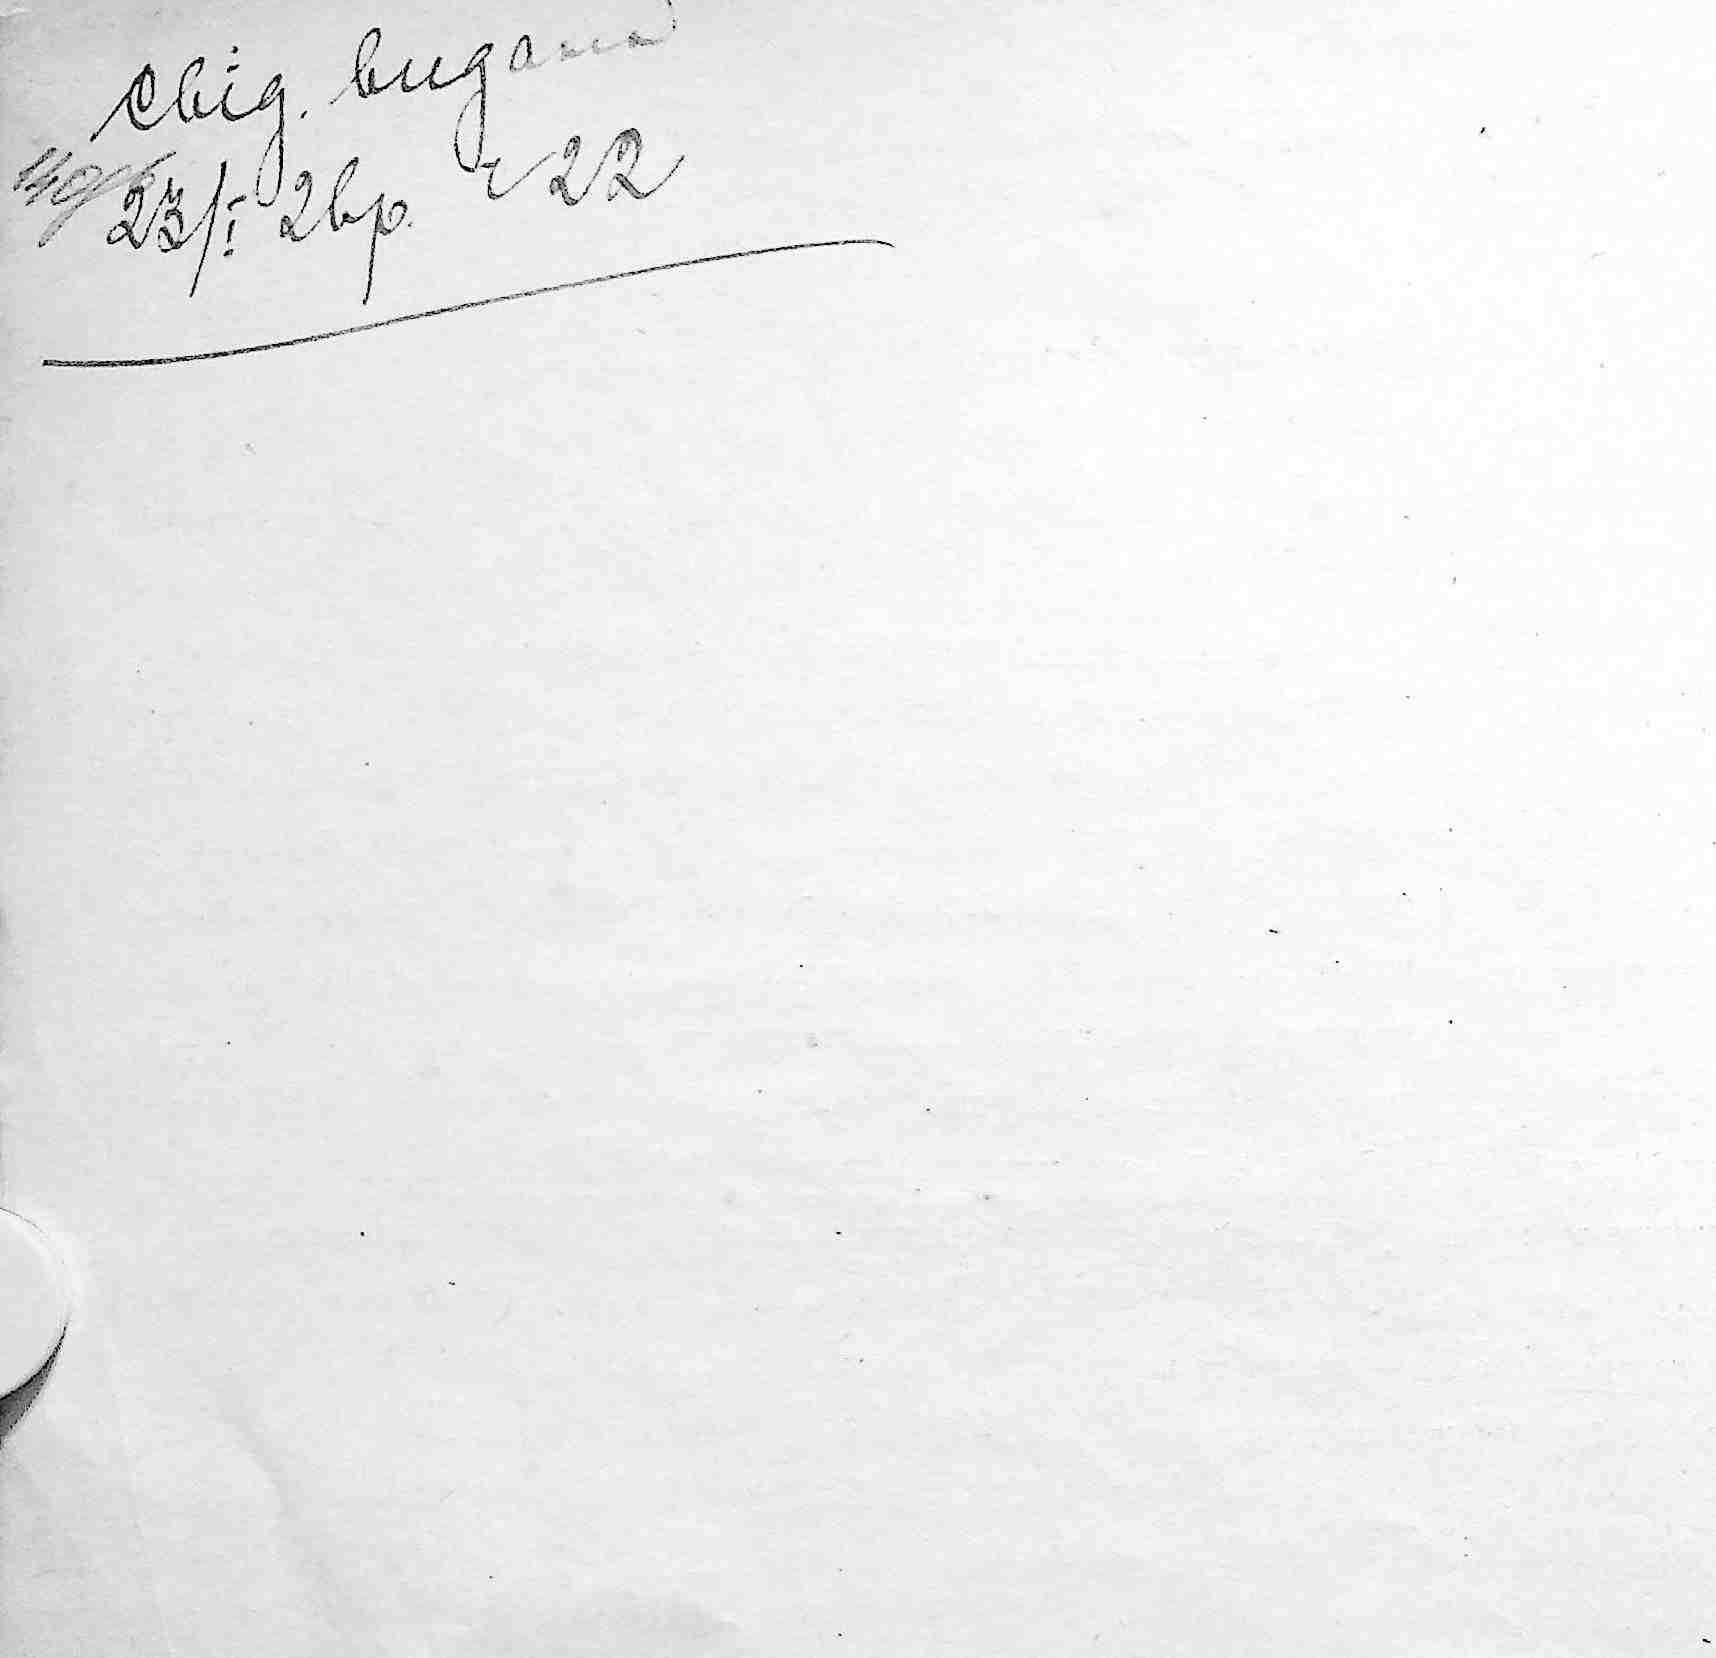 свід. видано
23/I 2вр. 22